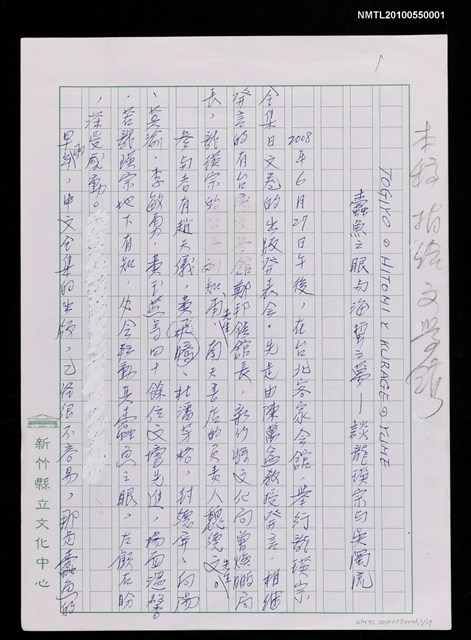 NMTL20100550001
本稿捐給文學館
TOGIYO の HITOMI と KURAGE の YUME
蠹魚之眼与海蜇之夢—談龍瑛宗与吳濁流
2008年6月27日午後，在台北客家会館，舉行龍瑛宗
全集日文卷的出版發表会。先是由陳萬益教授發言，相繼
發言的有台灣文學館鄭邦鎮館長，新竹縣文化局曾煥鵬局
長，龍瑛宗的 劉知甫先生，南天書店的負責人魏德文先生。
參与者有趙天儀，黃 ，杜潘芳格，封德屏，向陽
，莫渝，李敏勇，黃玉燕等四十餘位文壇先進，場面溫馨
。若龍瑛宗地下有知，必会轉動其蠹魚之眼，左顧右盼
，深受感動。
早期，中文全集的出版，已經很不容易，那古蠹魚的
新竹縣立文化中心
NMTL20100550001